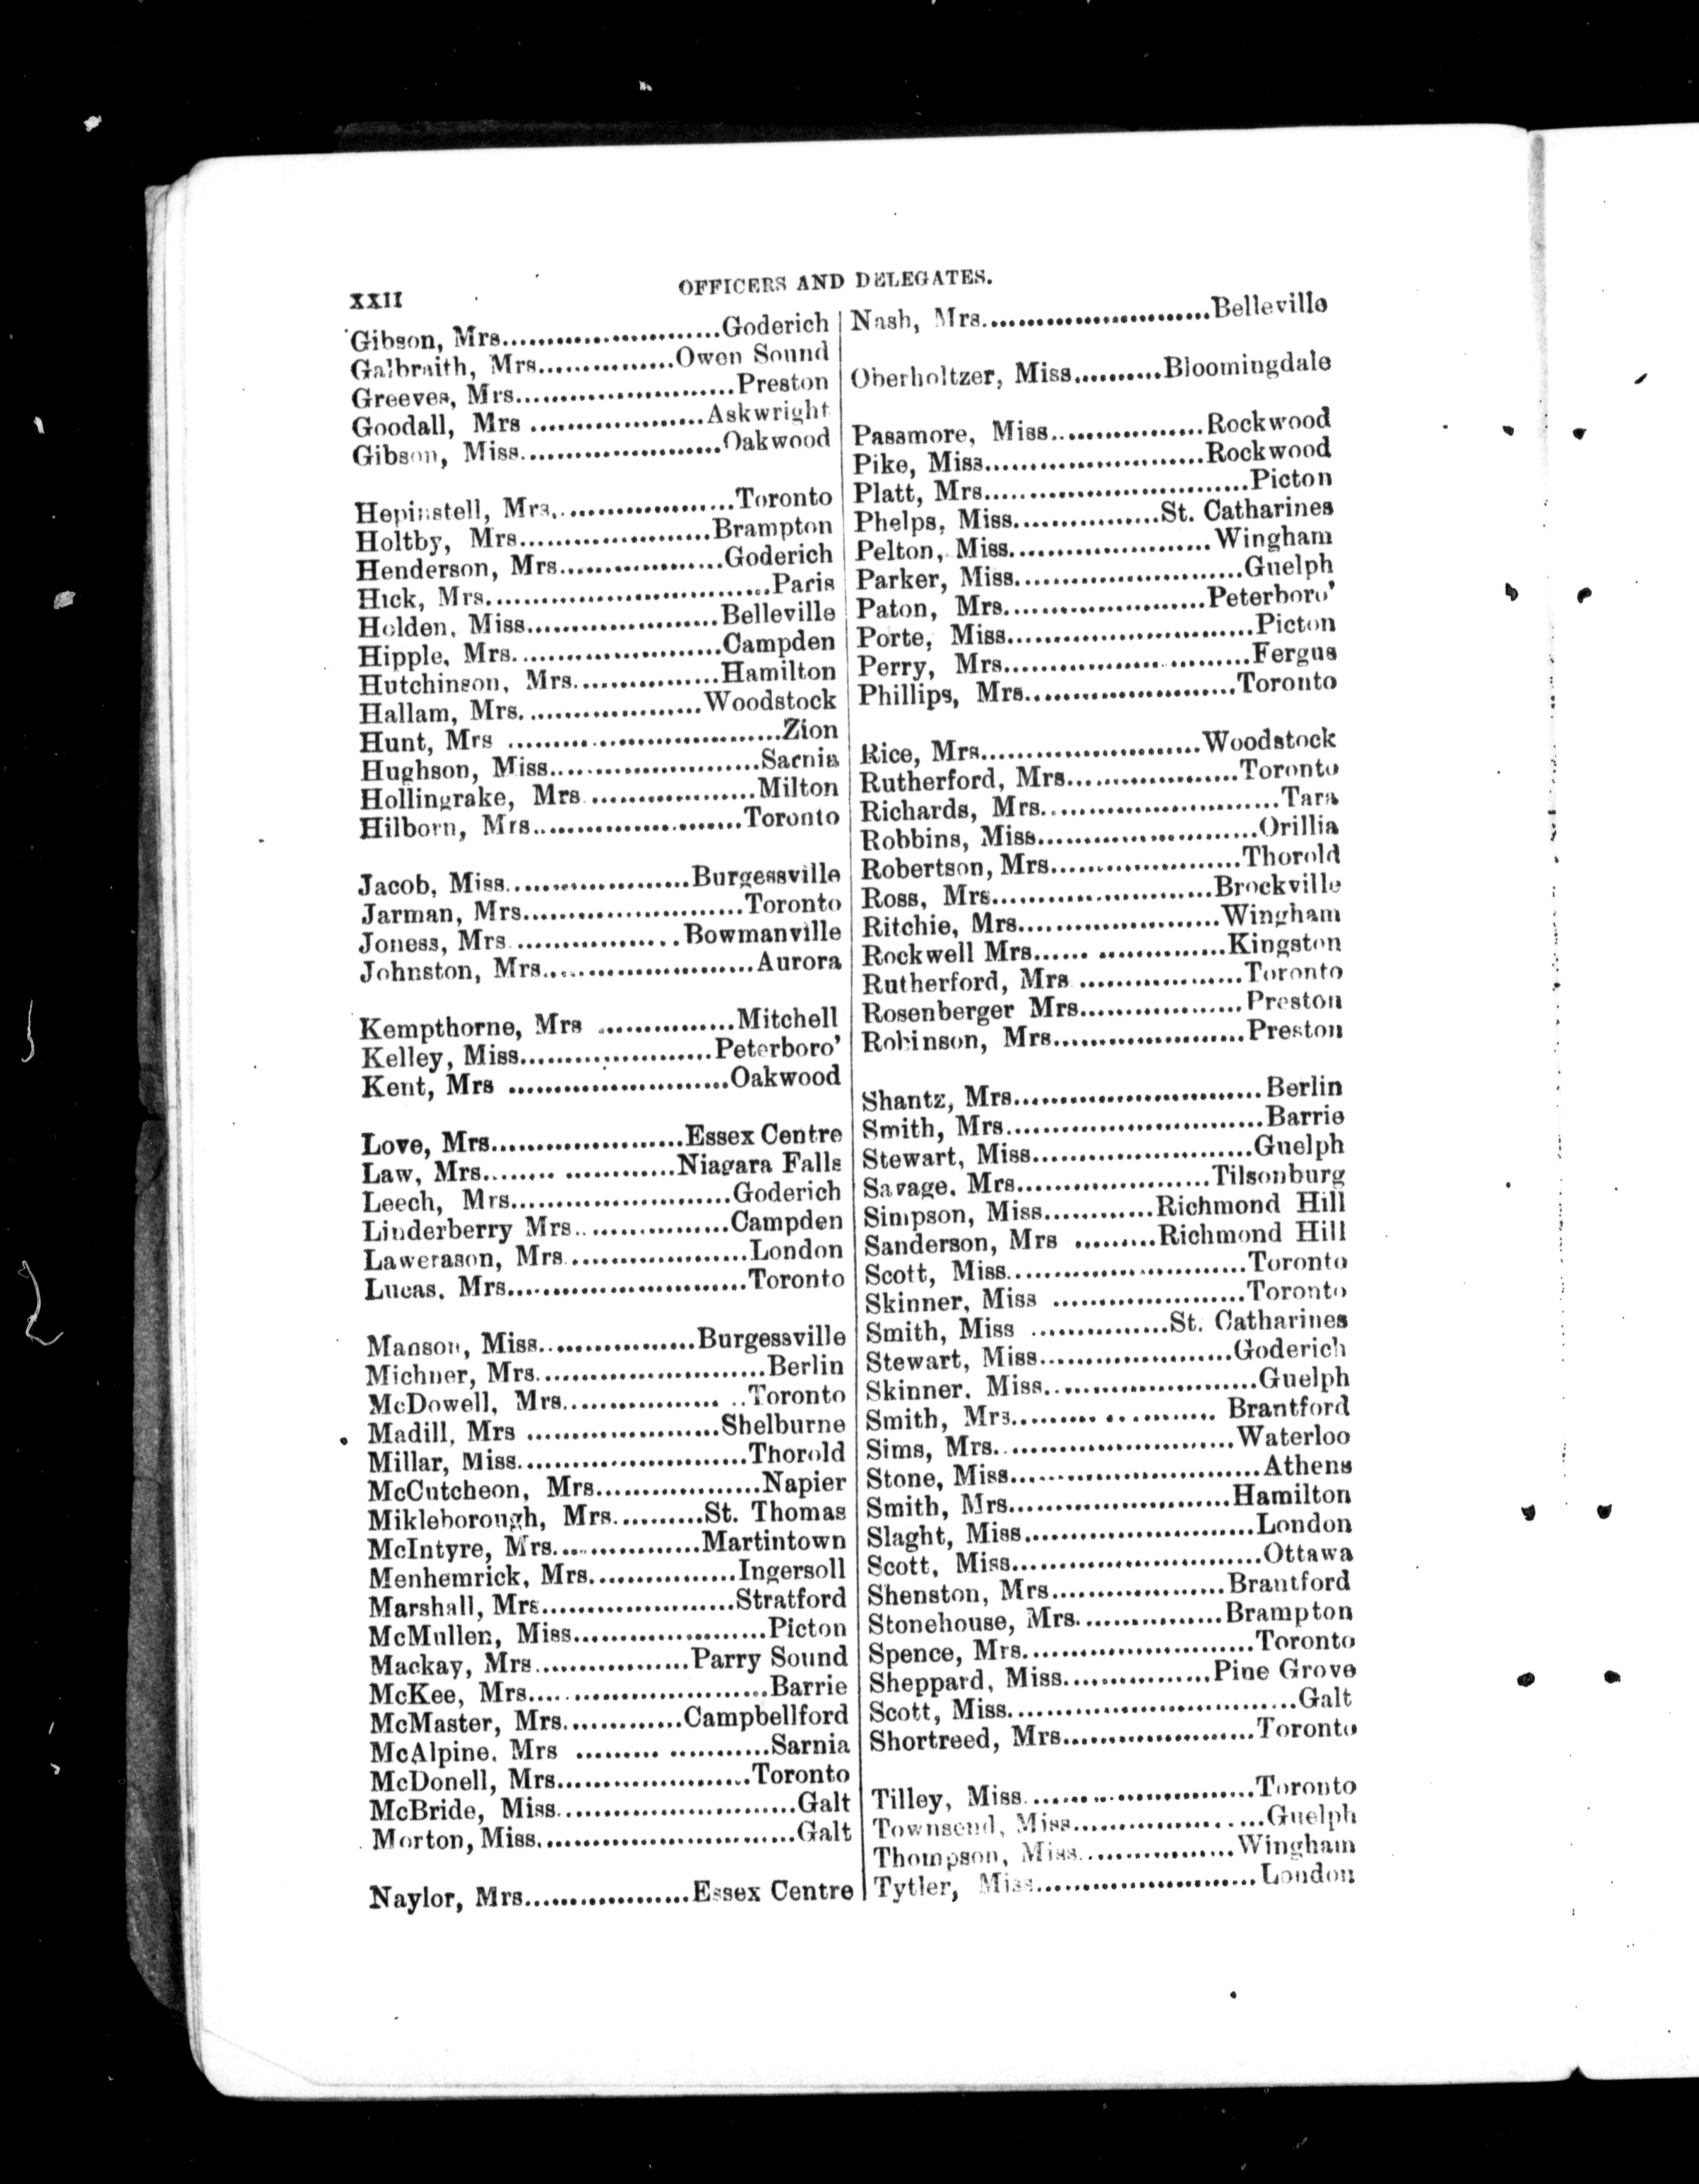 XXII
OFFICERS AND DELEGATES.
Gibson, Mrs........................Goderich
Galbraith, Mrs...............Owen Sound
Greeves, Mrs........................Preston
Goodall, Mrs ...................Askwright
Gibson, Miss......................Oakwood
Hepinstell, Mrs...................Toronto
Holtby, Mrs.....................Brampton
Henderson, Mrs..................Goderich
Hick, Mrs...............................Paris
Holden, Miss.....................Belleville
Hipple, Mrs.......................Campden
Hutchinson, Mrs................Hamilton
Hallam, Mrs....................Woodstock
Hunt, Mrs ..............................Zion
Hughson, Miss.......................Sarnia
Hollingrake, Mrs ..................Milton
Hilborn, Mrs.......................Toronto
Jacob, Miss....................Burgessville
Jarman, Mrs........................Toronto
Joness, Mrs..................Bowmanville
Johnston, Mrs.......................Aurora
Kempthorne, Mrs ...............Mitchell
Kelley, Miss.....................Peterboro'
Kent, Mrs ........................Oakwood
Love, Mrs.....................Essex Centre
Law, Mrs........ ............Niagara Falls
Leech, Mrs........................Goderich
Linderberry Mrs.................Campden
Lawerason, Mrs....................London
Lucas, Mrs..........................Toronto
Manson, Miss.................Burgessville
Michner, Mrs.........................Berlin
McDowell, Mrs................. ..Toronto
Madill, Mrs .....................Shelburne
Millar, Miss.........................Thorold
McCutcheon, Mrs..................Napier
Mikleborough, Mrs..........St. Thomas
McIntyre, Mrs................Martintown
Menhemrick, Mrs................Ingersoll
Marshall, Mrs.....................Stratford
McMullen, Miss.....................Picton
Mackay, Mrs.................Parry Sound
McKee, Mrs..........................Barrie
McMaster, Mrs.............Campbellford
McAlpine, Mrs ......... ...........Sarnia
McDonell, Mrs.....................Toronto
McBride, Miss..........................Galt
Morton, Miss............................Galt
Naylor, Mrs..................Essex Centre
Nash, Mrs.........................Belleville
Oberholtzer, Miss..........Bloomingdale
Passmore, Miss.................Rockwood
Pike, Miss........................Rockwood
Platt, Mrs.............................Picton
Phelps, Miss................St. Catharines
Pelton, Miss......................Wingham
Parker, Miss.........................Guelph
Paton, Mrs......................Peterboro'
Porte, Miss...........................Picton
Perry, Mrs...........................Fergus
Phillips, Mrs.......................Toronto
Rice, Mrs........................Woodstock
Rutherford, Mrs...................Toronto
Richards, Mrs..........................Tara
Robbins, Miss........................Orillia
Robertson, Mrs.....................Thorold
Ross, Mrs........................Brockville
Ritchie, Mrs......................Wingham
Rockwell Mrs...... ..............Kingston
Rutherford, Mrs ..................Toronto
Rosenberger Mrs..................Preston
Robinson, Mrs.....................Preston
Shantz, Mrs...........................Berlin
Smith, Mrs............................Barrie
Stewart, Miss........................Guelph
Savage, Mrs.....................Tilsonburg
Simpson, Miss............Richmond Hill
Sanderson, Mrs .........Richmond Hill
Scott, Miss..........................Toronto
Skinner, Miss .....................Toronto
Smith, Miss ...............St. Catharines
Stewart, Miss.....................Goderich
Skinner, Miss.......................Guelph
Smith, Mrs......... ............ Brantford
Sims, Mrs..........................Waterloo
Stone, Miss...........................Athens
Smith, Mrs........................Hamilton
Slaght, Miss.........................London
Scott, Miss...........................Ottawa
Shenston, Mrs...................Brantford
Stonehouse, Mrs................Brampton
Spence, Mrs.........................Toronto
Sheppard, Miss................Pine Grove
Scott, Miss...............................Galt
Shortreed, Mrs.....................Toronto
Tilley, Miss.........................Toronto
Townsend, Miss.....................Guelph
Thompson, Miss.................Wingham
Tytler, Miss........................London